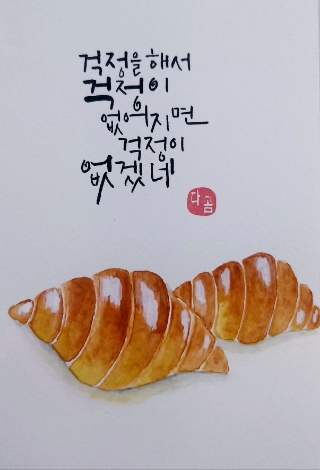 걱정을 해서
걱정이
없어지면
걱정이
없겠네
다곰